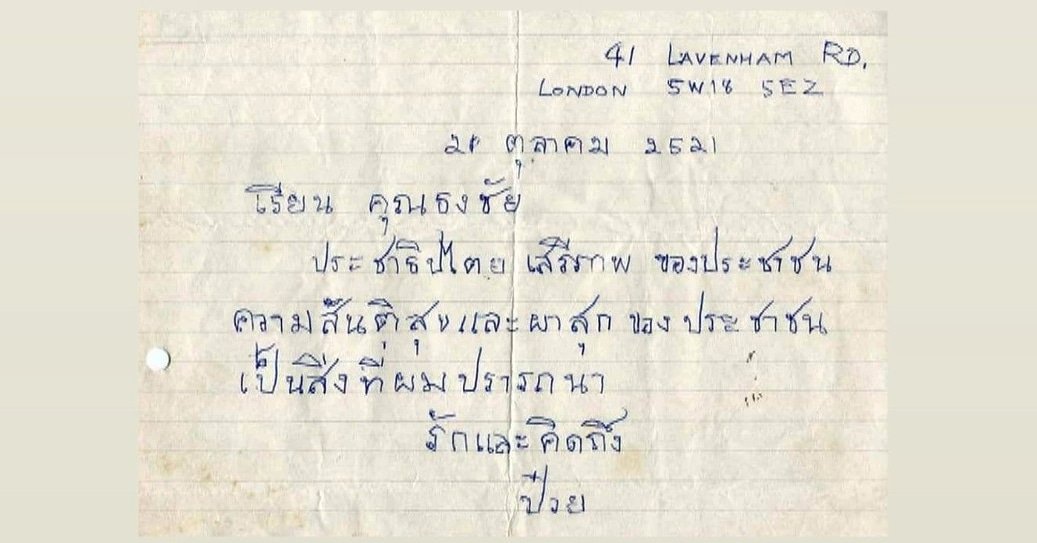 41 LAVENHAM RD.
LONDON SW18 5EZ
ตุลาคม 2521
เรียน คุณธงชัย
ประชาธิปไตย เสรีภาพ ของประชาชน
ความสันติสุขและผาสุกของประชาชน
เป็นสิ่งที่ผมปรารถนา
รักและคิดถึง
ป๋วย